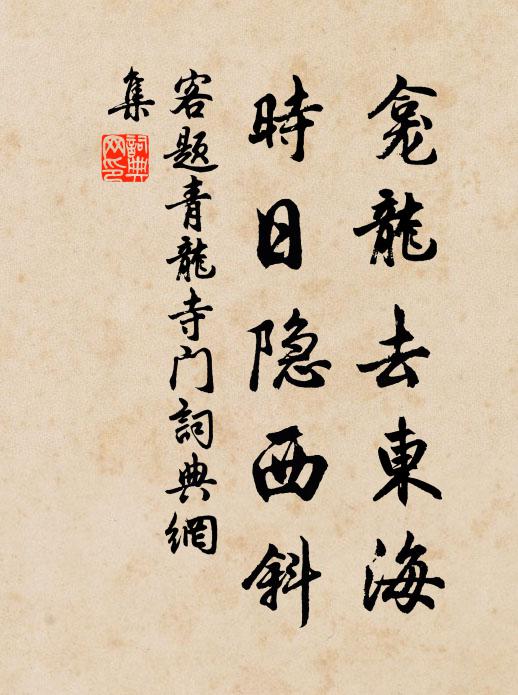 龛龍去東海
時日隐西斜
客题青龍寺门詞典網
集
詞典网印